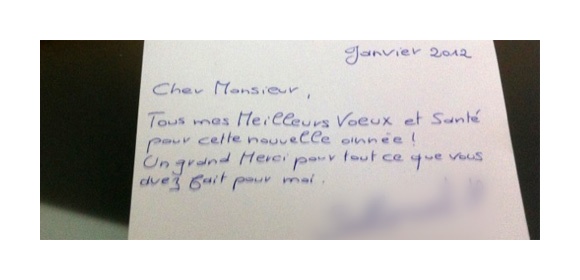 Janvier 2012
Cher Monsieur,
Tous mes Meilleurs Voeux et Santé
pour cette nouvelle année !
Un grand Merci pour tout ce que vous
avez fait pour moi.